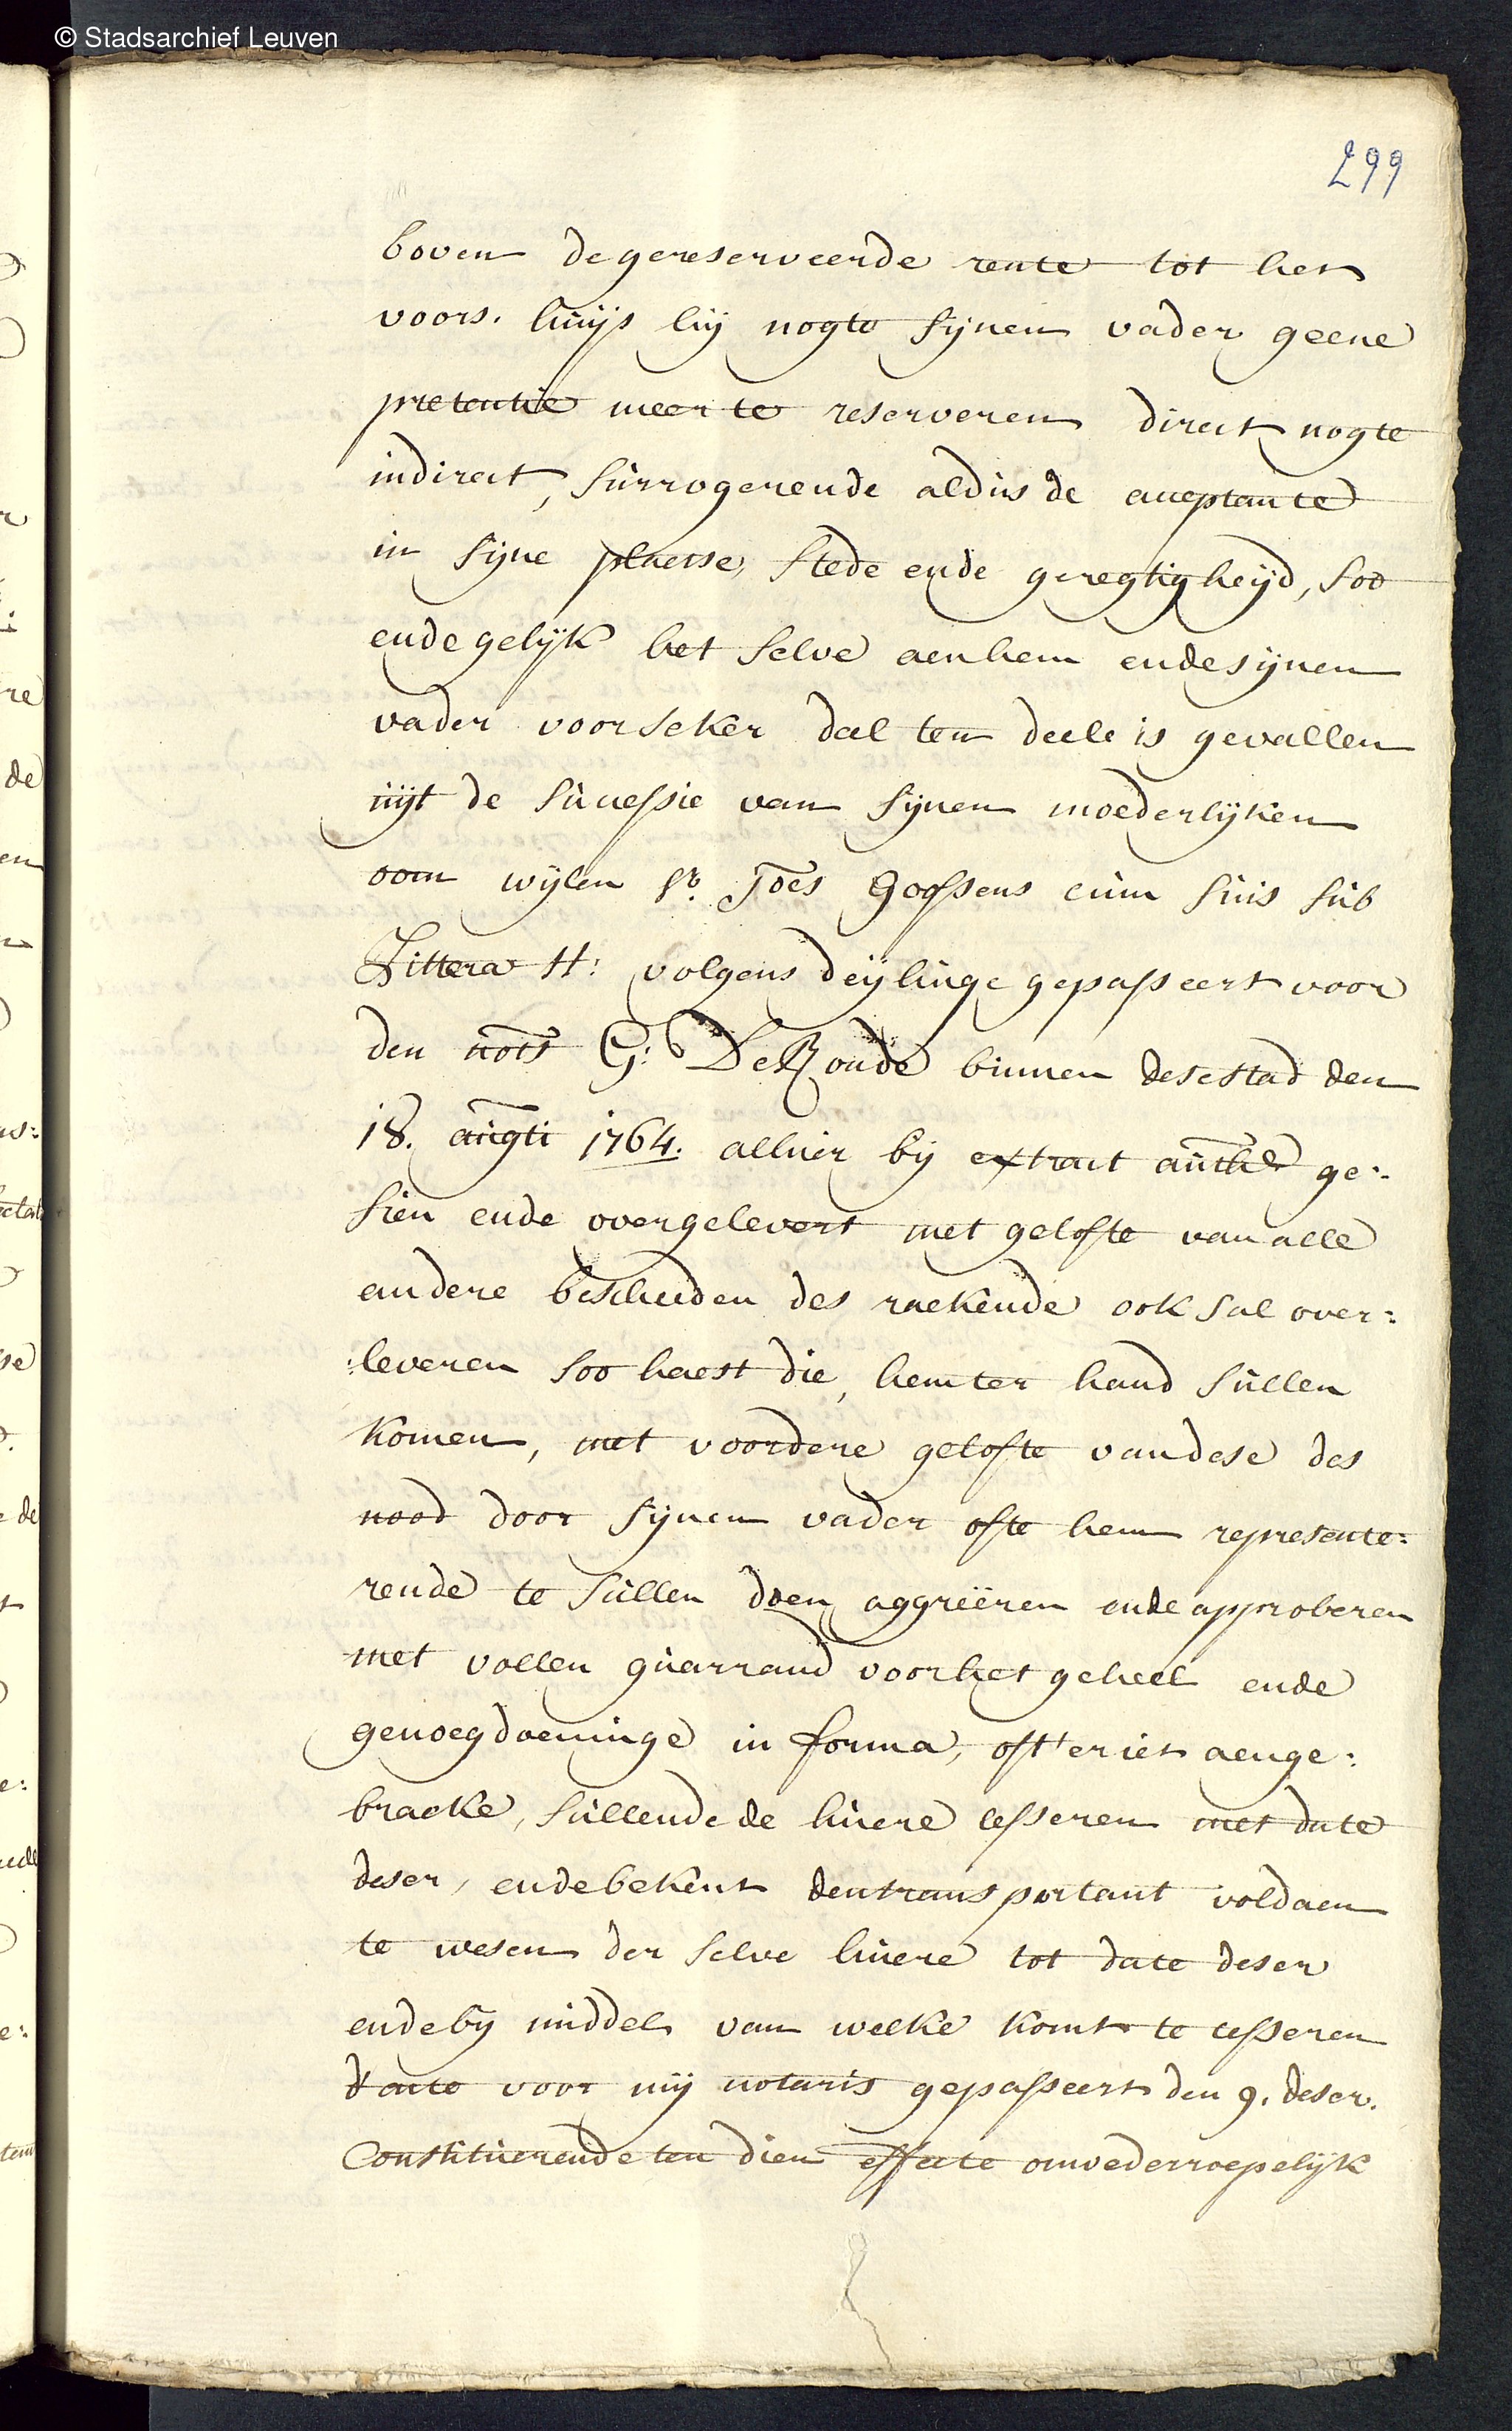 © Stadsarchief Leuven
299
boven de gereserveerde rente tot het
voors. huijs hij nogte sijnen vader geene
pretentie meer te reserveren direct nogte
indirect, surrogerende aldus de acceptante
in sijne plaetse, stede ende geregtigheijd, soo
ende gelijk het selve aen hem ende sijnen
vader voor seker deel ten deele is gevallen
uijt de successie van sijnen moederlijken
oom wijlen Sr. Joes Goossens cum suis sub
Littera H: volgens deijlinge gepasseert voor
den nots G: De Ronde binnen dese stad den
18. augti 1764. alhier bij extract authe ge:
sien ende overgelevert met gelofte van alle
andere bescheeden des raekende ook sal over:
:leveren soo haest die, hem ter hand sullen
komen, met voordere gelofte van dese des
nood door sijnen vader ofte hem represente:
rende te sullen doen aggreëren ende approberen
met vollen guarrand voor het geheel ende
genoegdoeninge in forma, oft'er iet aenge:
bracke, sullende de huere cesseren met date
deser, ende bekent den transportant voldaen
te wesen der selve huere tot date deser
ende bij middel van welke komt te cesseren
d'acte voor mij notaris gepasseert den 9. deser.
Constituerende ten dien effecte onwederroepelijk